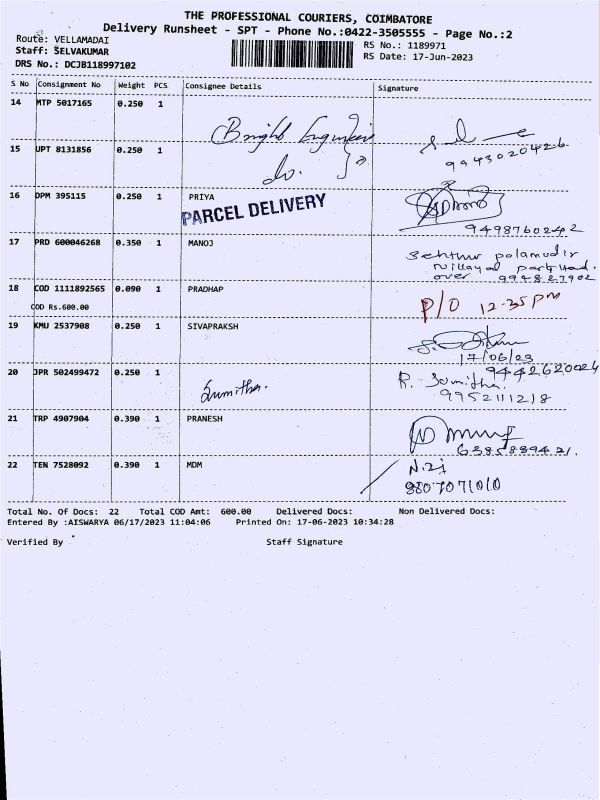 THE PROFESSIONAL COURIERS, COIMBATORE
Delivery Runsheet - SPT - Phone No.:0422-3505555 - Page No.:2
Route: VELLAMADAI
RS No.: 1189971
Staff: SELVAKUMAR
RS Date: 17-Jun-2023
DRS No.: DCJB118997102
S No Consignment No Weight PCS Consignee Details Signature
14 MTP 5017165 0.250 1
Bright Engineer
15 UPT 8131856 0.250 1
9943020426
16 DPM 395115 0.250 1 PRIYA
PARCEL DELIVERY
9498760242
17 PRD 600046268 0.350 1 MANOJ
over
18 COD 1111892565 0.090 1 PRADHAP
COD Rs.600.00
P/O 12.35 pm
19 KMU 2537908 0.250 1 SIVAPRAKSH
17/06/23
9442620024
20 JPR 502499472 0.250 1 Sumitha. R. Sumitha.
9952111218
21 TRP 4907904 0.390 1 PRANESH
6385889421.
22 TEN 7528092 0.390 1 MDM
8807071010
Total No. Of Docs: 22 Total COD Amt: 600.00 Delivered Docs: Non Delivered Docs:
Entered By :AISWARYA 06/17/2023 11:04:06 Printed On: 17-06-2023 10:34:28
Verified By Staff Signature